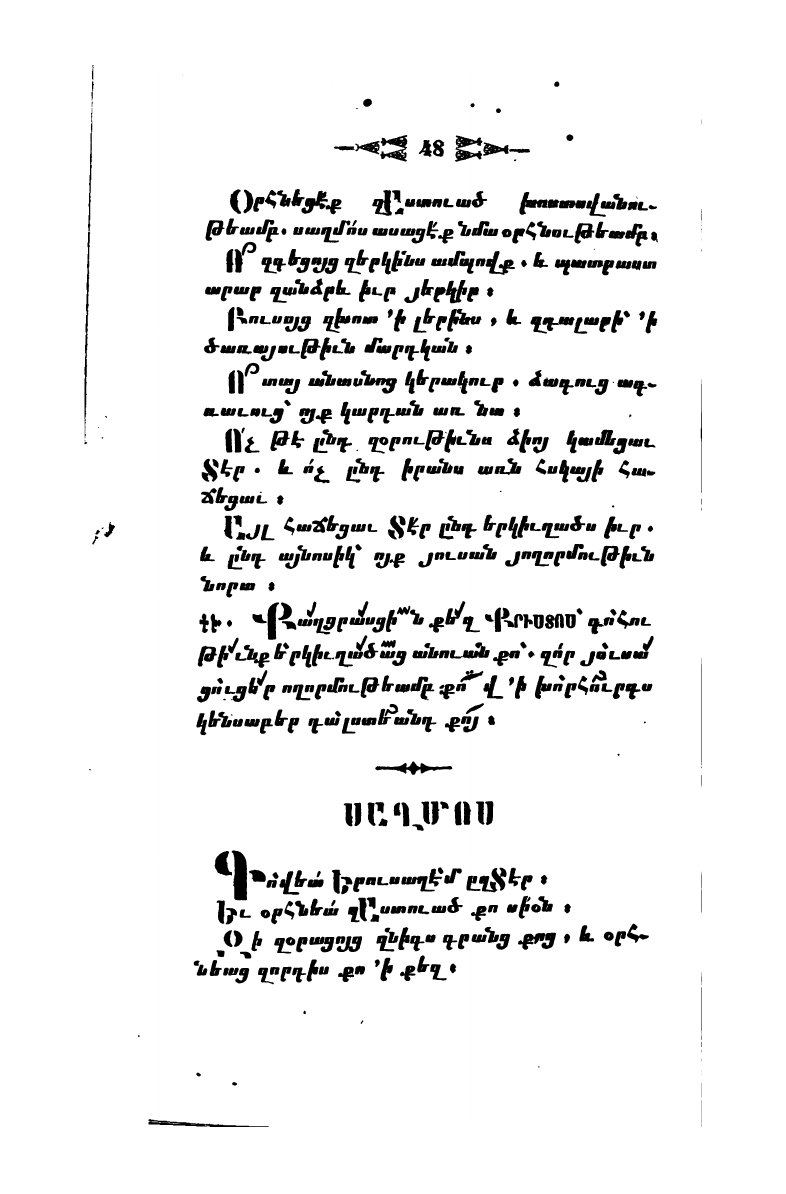 48
Օրհնեցէք զԱստուած խոստովանու-
թեամբ. սաղմոս ասացէք նմա օրհնութեամբ։
Ո՞ զգեցոյց զերկինս ամպովք. և պատրաստ
արար զանձրև իւր յերկիր։
Բուսոյց զխոտ ՚ի լերինս, և զդալարի՝ ՚ի
ծառայութիւն մարդկան։
Ո՞ տայ անասնոց կերակուր. ձագուց ագ-
ռաւուց՝ ոյք կարդան առ նա։
Ո՛չ թէ ընդ զօրութիւնս ձիոյ կամեցաւ
Տէր. և ո՛չ ընդ իրանս առն հսկայի հա-
ճեցաւ։
Այլ հաճեցաւ Տէր ընդ երկիւղածս իւր.
և ընդ այնոսիկ՝ ոյք յուսան յողորմութիւն
նորա։
Քաղցրասցին քեզ ՔՐԻՍՏՈՍ՝ գոհու
թիւնք երկիւղածաց անուան քո՝. զոր յուսա
ցուցեր ողորմութեամբ քով ՚ի խորհուրդս
կենսաբեր գալստեանդ քոյ։
ՍԱՂՄՈՍ
Գովեա՛ Երուսաղէմ ըզՏէր։
Եւ օրհնեա՛ զԱստուած քո սիօն։
Զի զօրացոյց զնիգս դրանց քոց, և օրհ-
նեաց զորդիս քո ՚ի քեզ։